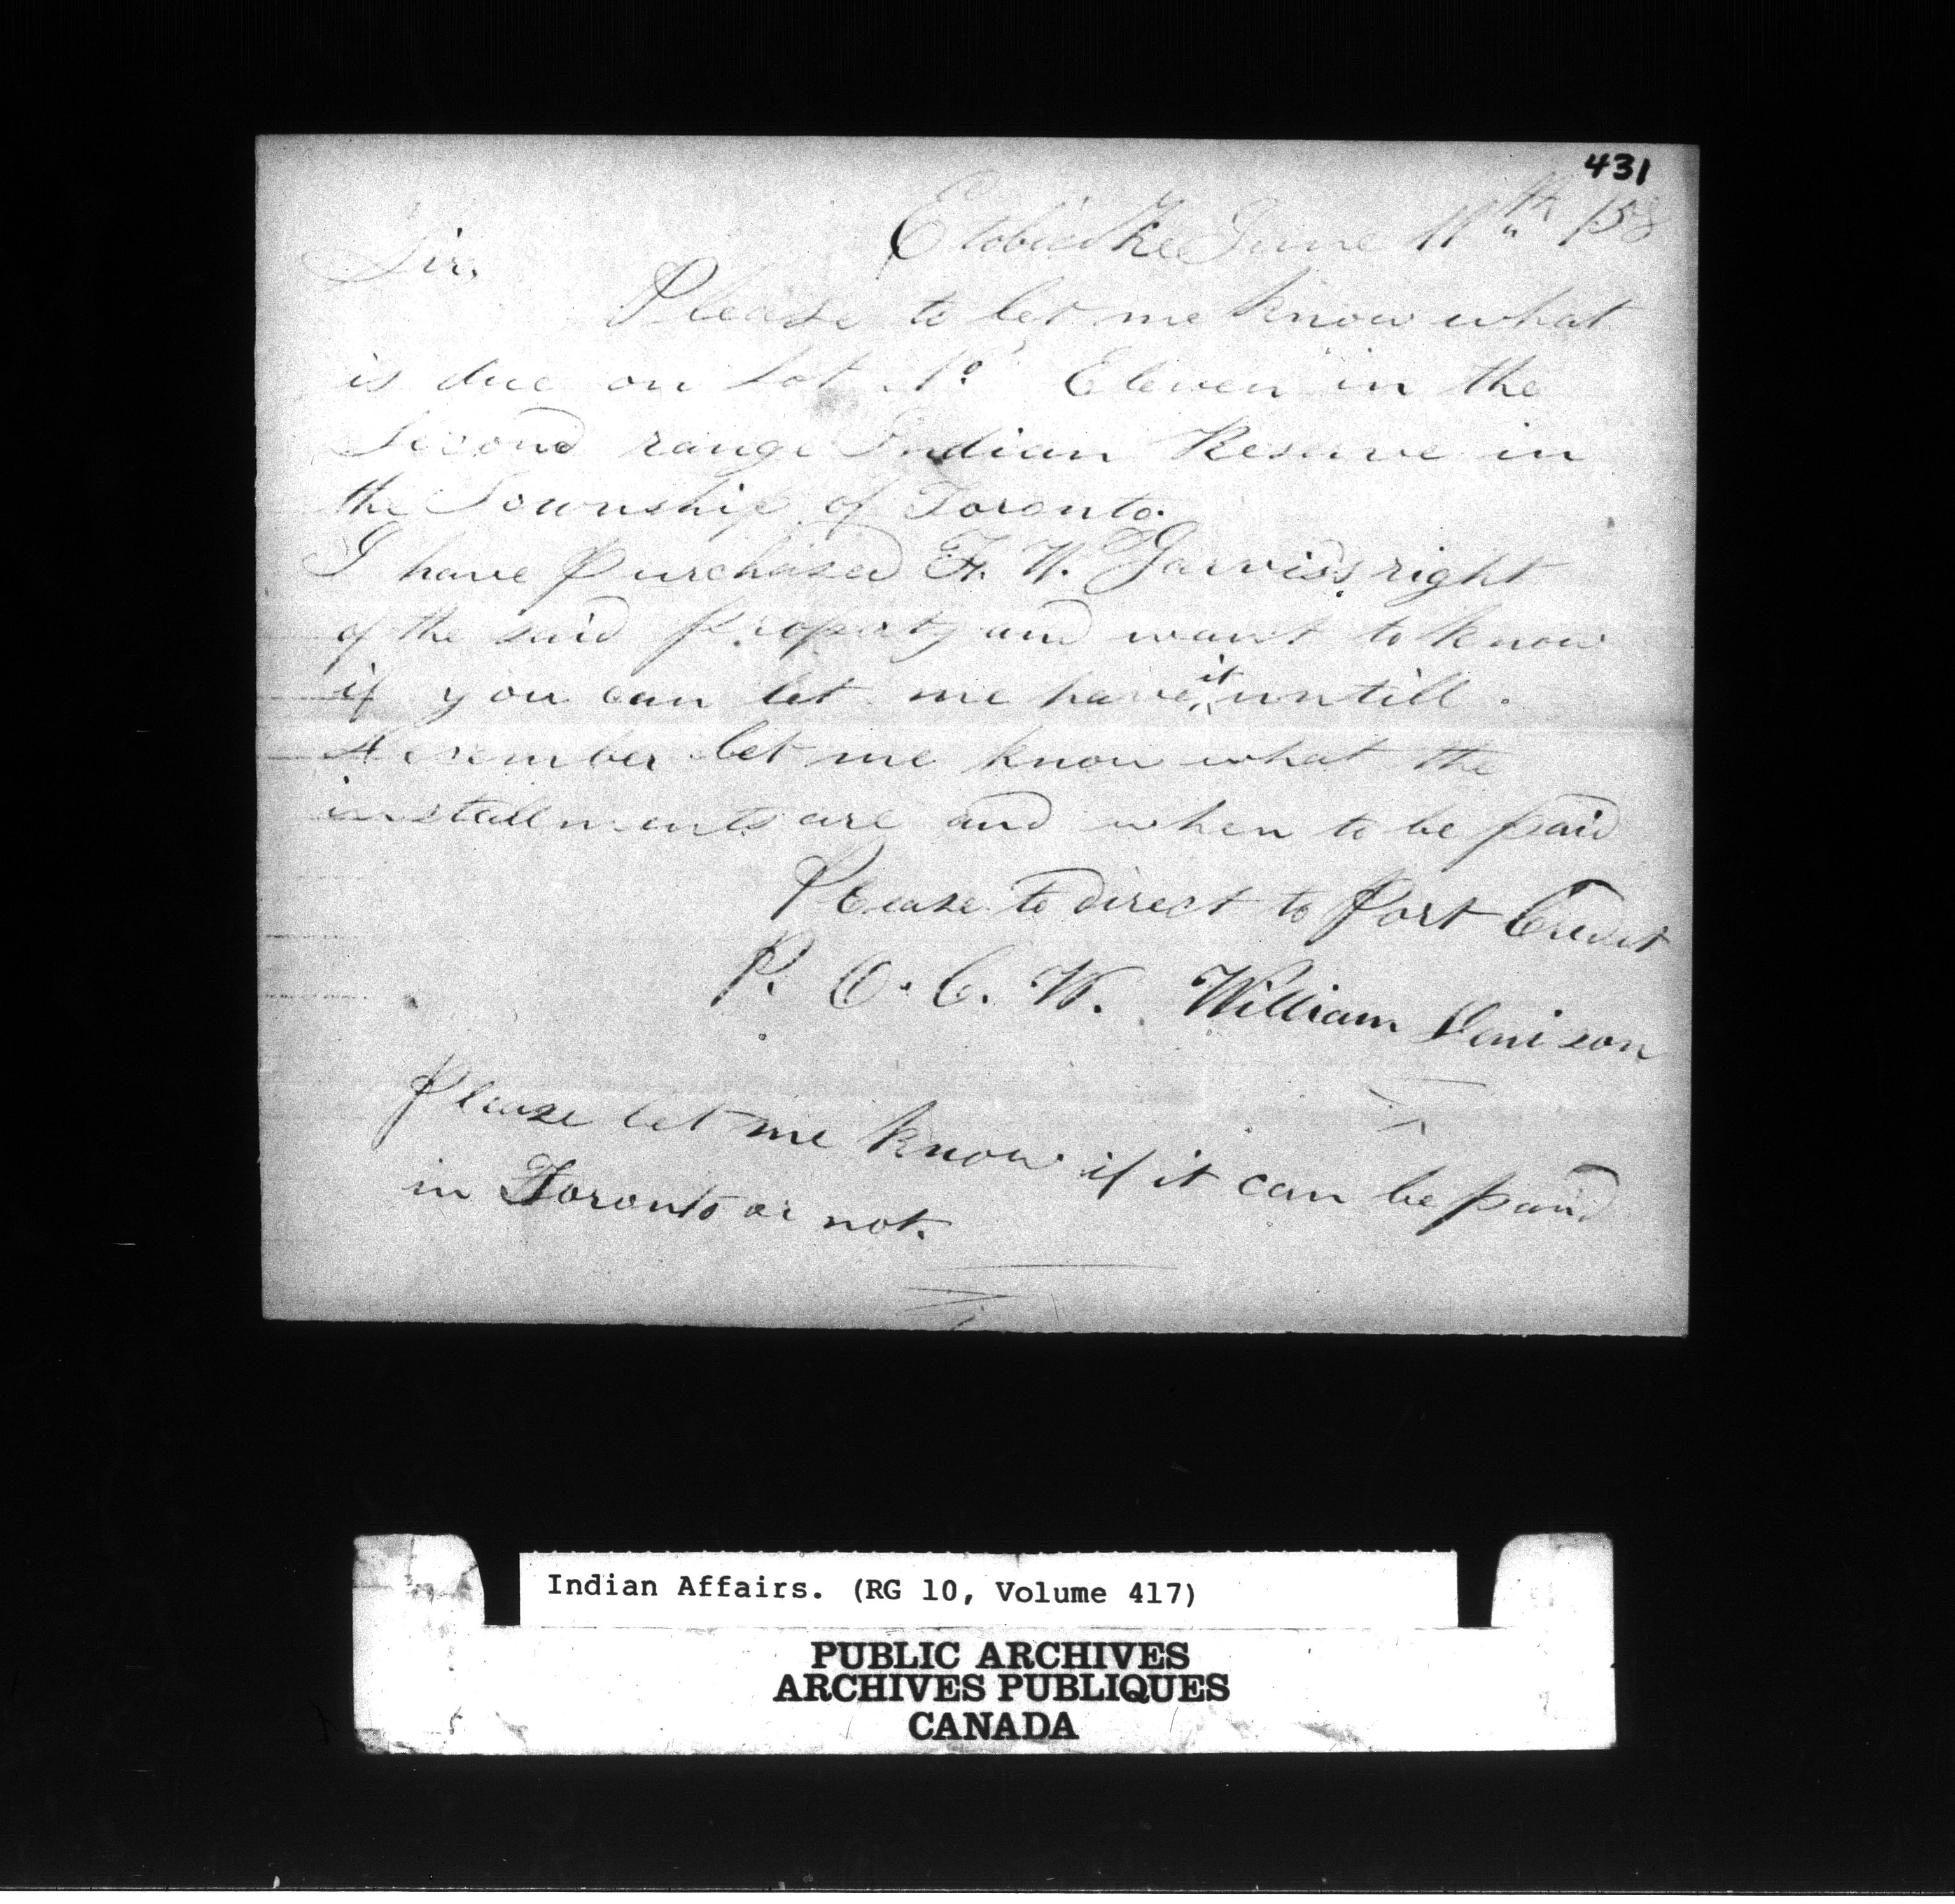 431
Etobicoke June 11th /58
Sir,
Please to let me know what
is due on Lot No Eleven in the
Second range Indian Reserve in
the Township of Toronto.
I have purchased F. W. Jarvis's right
of the said property and want to know
if you can let me have it untill
let me know what the
installments are and when to be paid
Please to direct to Port Credit
P. O. C. W. William Denison
Please let me know if it can be paid
in Toronto or not.
Indian Affairs. (RG 10, Volume 417)
PUBLIC ARCHIVES
ARCHIVES PUBLIQUES
CANADA